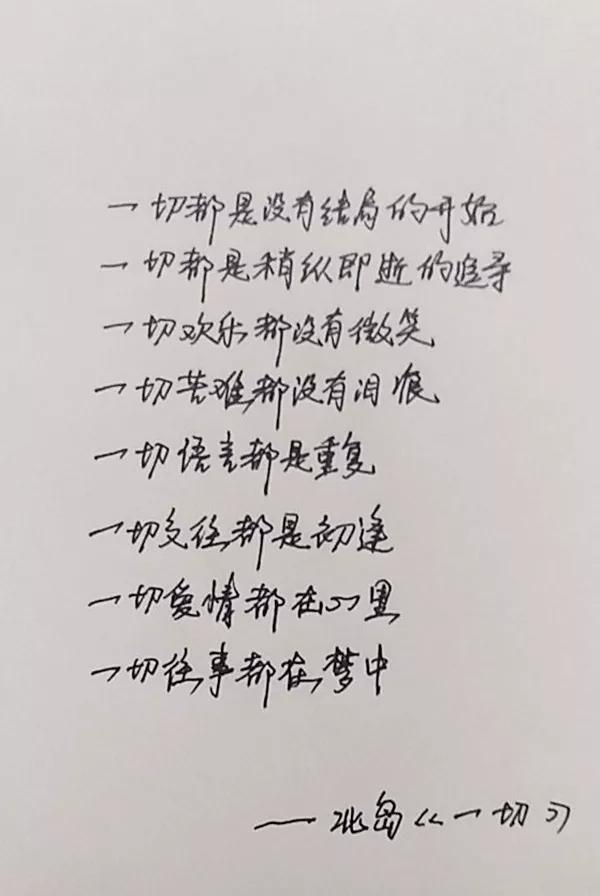 一切都是没有结局的开始
一切都是稍纵即逝的追寻
一切欢乐都没有微笑
一切苦难都没有泪痕
一切语言都是重复
一切交往都是初逢
一切爱情都在心里
一切往事都在梦中
——北岛《一切》